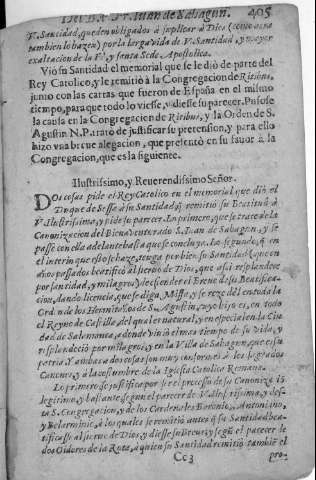 Del B. P. Fr. Iuan de Sahagun. 405
V. Santidad, queden obligados à suplicar à Dios (como aora
tambien lo hazen) por la larga vida de V. Santidad, y mayor
exaltacion de la F, y santa Sede Apostolica.
Viò su Santidad el memorial que se le diò de parte del
Rey Catolico, y le remitiò à la Congregacion de Ritibus,
junto con las cartas que fueron de España en el mismo
tiempo, para que todo lo viesse, y diesse su parecer. Pusose
la causa en la Congregacion de Ritibus, y la Orden de S.
Agustin N.P. tratò de justificar su pretension, y para ello
hizo vna breue alegacion, que presentò en su fauor à la
Congregacion, que es la siguiente.
Ilustrissimo, y Reuerendissimo Señor.
DOs cosas pide el Rey Catolico en el memorial, que diò el
Duque de Sessa à su Santidad, q̃ remitiò su Beatitud à
V. Ilustrissima, y pide su parecer. La primera, que se trate de la
Canonizacion del Bienauenturado S. Iuan de Sahagun, y se
passe con ella adelante hasta que se concluya. La segunda, q̃ en
el interin que esto se haze, tenga por bien su Santidad (que en
años passados beatificò al sieruo de Dios, que assi resplandece
por santidad, y milagros) de estender el Breue de su Beatifica-
cion, dando licencia, que se diga Missa, y se reze dèl en toda la
Orden de los Hermitaños de S. Agustin, cuyo hijo es, en todo
el Reyno de Castilla, del qual es natural, y en especial en la Ciu
dad de Salamanca, adonde viuiò el mas tiempo de su vida, y
resplandeciò por milagros; y en la Villa de Sahagun, que es su
patria. Y ambas à dos cosas son muy conformes à los sagrados
Canones, y à la costumbre de la Iglesia Catolica Romana.
Lo primero se justifica por ser el processo de su Canonizaciõ
legitimo, y bastante, segun el parecer de V. Ilustrissima, y des-
ta S. Congregacion, y de los Cardenales Baronio, Antoniano,
y Belarminio, à los quales se remitiò antes q̃ su Santidad bea-
tificasse al sieruo de Dios, y diesse su Breue, y segũ el parecer de
dos Oidores de la Rota, à quien su Santidad remitiò tambiẽ el
Cc3 pro-